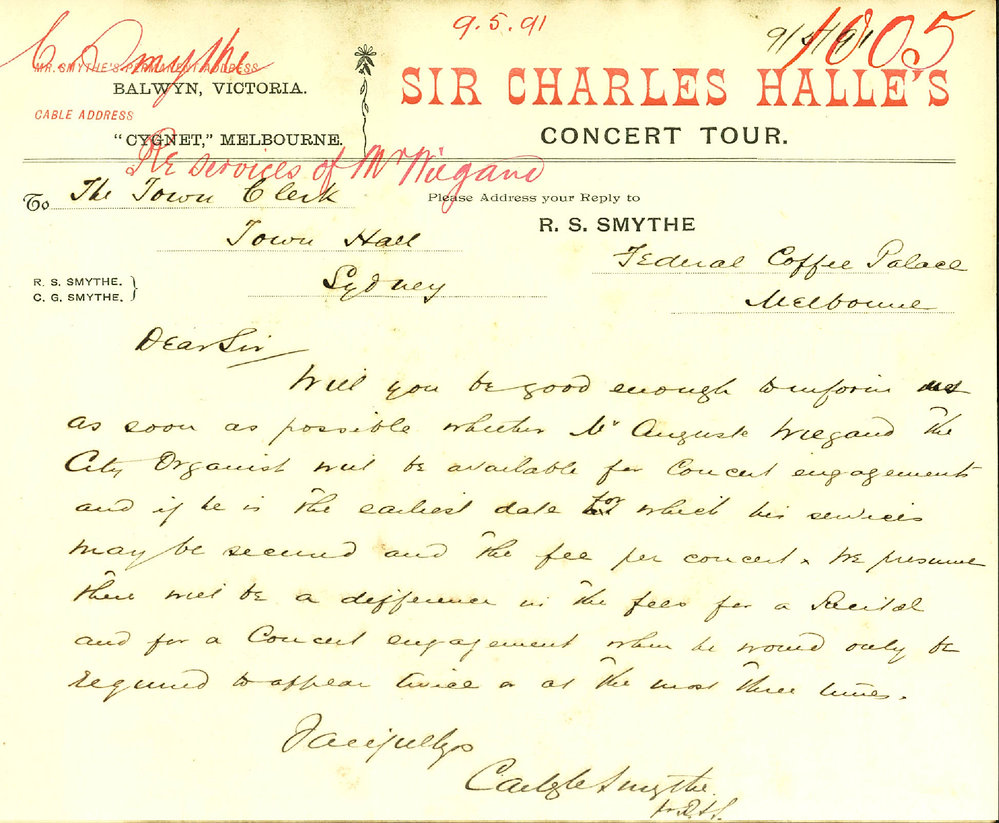 9.5.91
9/5/91
1805
C Smythe
MR. SMYTHE'S PERMANENT ADDRESS
BALWYN, VICTORIA.
CABLE ADDRESS
"CYGNET," MELBOURNE.
SIR CHARLES HALLE'S
CONCERT TOUR.
RE services of Mr Wiegand
To The Town Clerk
Town Hall
Sydney
Please Address your Reply to
R. S. SMYTHE
Federal Coffee Palace
Melbourne
R. S. SMYTHE.
C. G. SMYTHE.
Dear Sir
Will you be good enough to inform
as soon as possible whether Mr Auguste Wiegand the
City Organist will be available for Concert engagements
and if he is the earliest date for which his services
may be secured and the fee per concert. We presume
there will be a difference in the fees for a Recital
and for a Concert engagement when he would only be
required to appear twice or at the most three times.
Faithfully
Carlyle Smythe